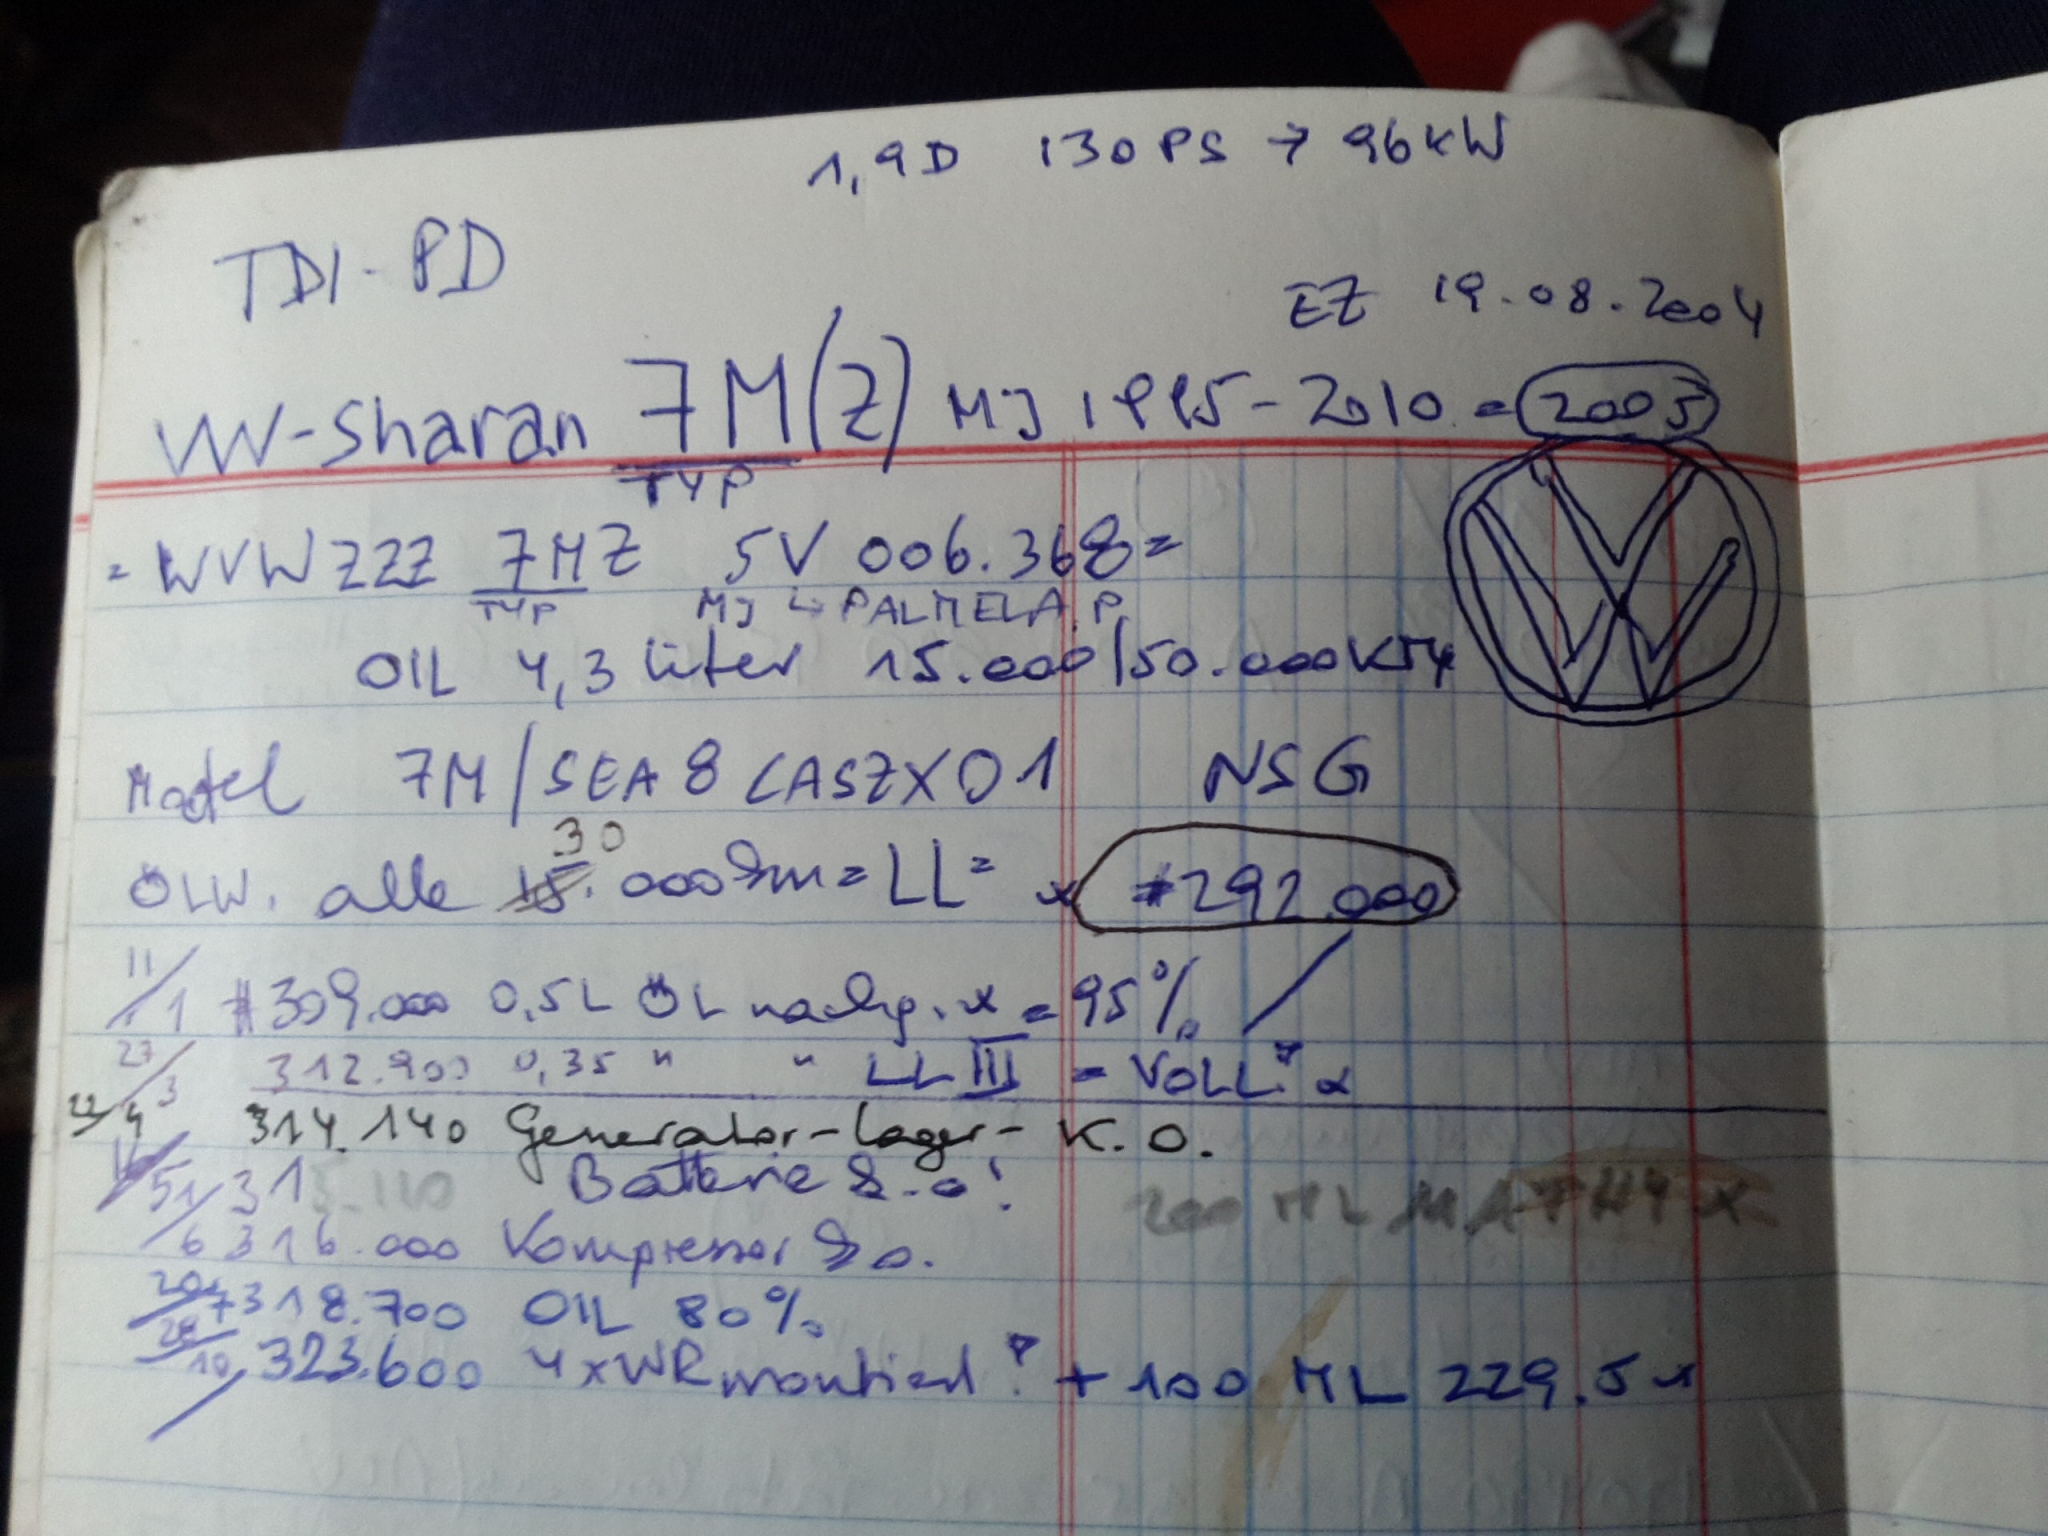 1,9D 130PS → 96KW
TDI-PD
EZ 19.08.2004
VW-Sharan 7M(Z) MJ 1995-2010 = 2005
TYP
= WVWZZZ 7MZ 5V 006.368=
TYP MJ ↳ PALMELA.P.
OIL 4,3 liter 15.000/50.000KM
Model 7M/SEA8 CASZX01 NSG
30
ÖLW. alle 15.000km = LL = x #292.000
11/1 #309.000 0,5L ÖL nachg. x = 95%
27/3 312.900 0,35 " " LL III = VOLL
22/4 314.140 Generator-lager- K.O.
5.110 Batterie k.o! 200 ML MATHY x
1/6 316.000 Kompressor ko.
20/7 318.700 OIL 80%
28/10 323.600 4xWR montiert + 100 ML 229.51